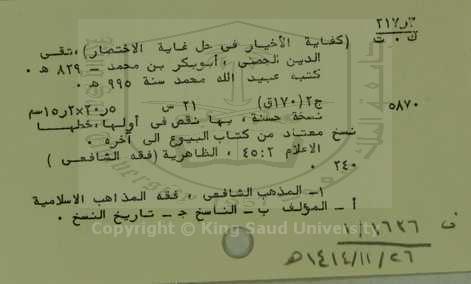 ٢١٧٫٣
ك ٠ ت
(كفاية الأخيار فى حل غاية الاختصار) ، تقى
الدين الحصنى ، أبوبكر بن محمد ــ ٨٢٩ هـ ٠
كتبه عبيد الله محمد سنة ٩٩٥ هـ ٠
٥٨٧٠
ج٢ (١٧٠ق) ٢١ س ٢٠٫٥×١٥٫٢سم
نسخة حسنة ، بها نقص فى أولها ، خطها
نسخ معتاد من كتاب البيوع الى آخره ٠
الاعلام ٢ : ٤٥ ، الظاهرية (فقه الشافعى )
٢٤٠ ٠
١ــ المذهب الشافعى ، فقه المذاهب الاسلامية
أ ــ المؤلف ب ــ الناسخ جـ ــ تاريخ النسخ ٠
Copyright © King Saud University
ف
١٤١٤/١١/٢٦هـ